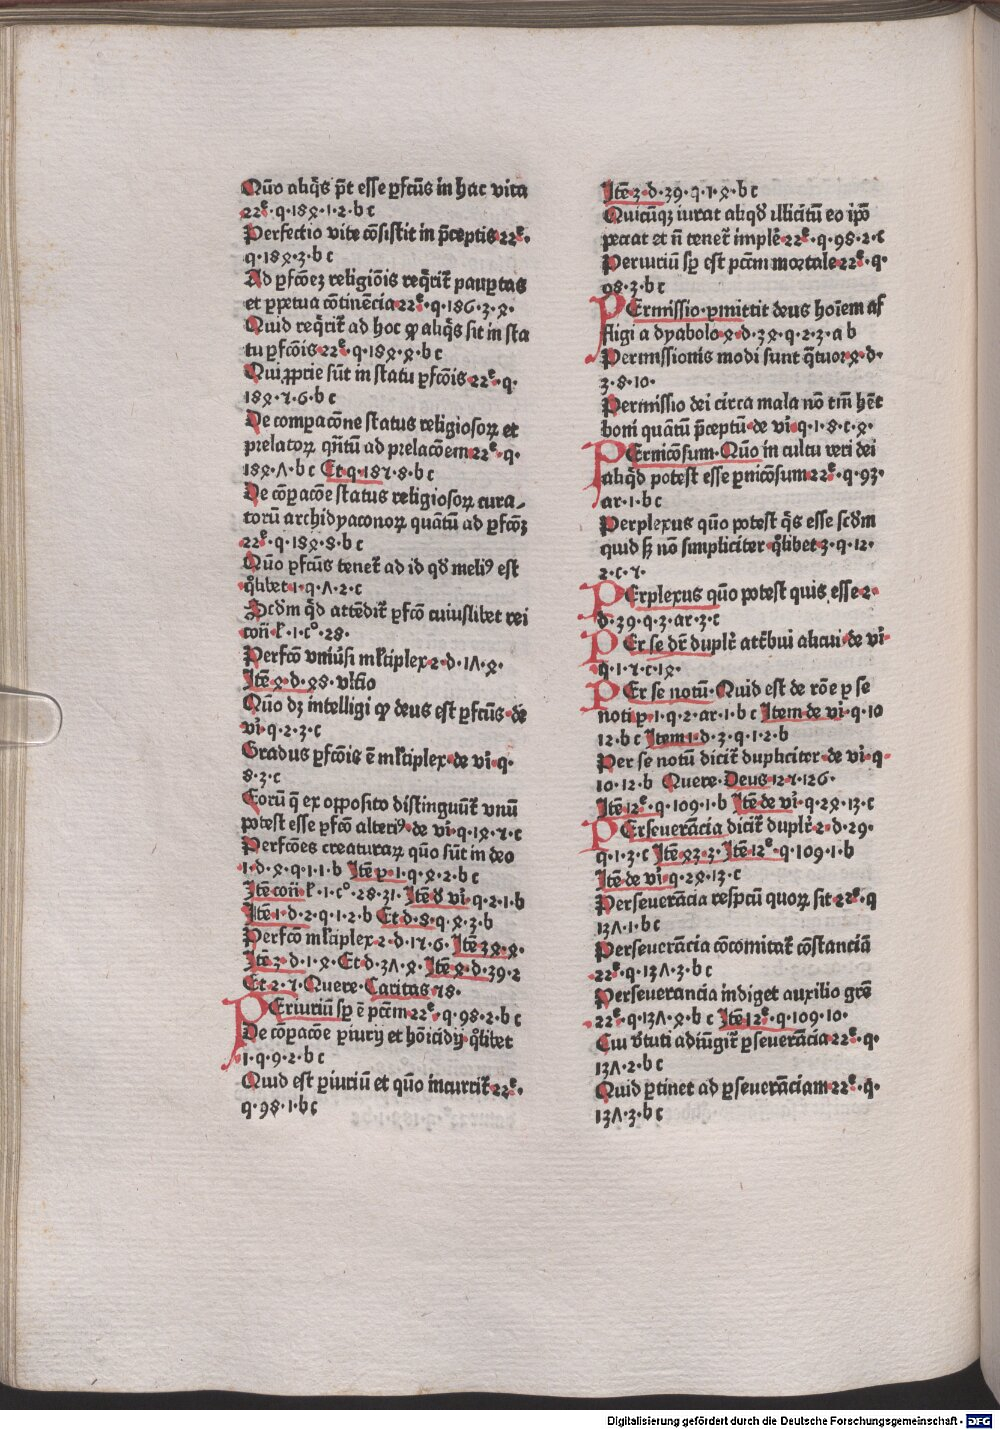 Quō aliq̄s pōt esse ꝑfctūs in hac vita
22ᵉ·q·184·1·2·b c
Perfectio vite cōsistit in p̄ceptis 22ᵉ·
q·184·3·b c
Ad ꝑfcōeꝫ religiōis req̄rit̄ pauꝑtas
et ꝑpetua cōtinēcia 22ᵉ·q·186·3·4·
Quid req̄rit̄ ad hoc ꝙ aliq̄s sit in sta
tu ꝑfcōis 22ᵉ·q·184·4·b c
Qui ꝓprie sūt in statu ꝑfcōis 22ᵉ·q·
184·5·6·b c
De compacōne status religiosoꝝ et
prelatoꝝ qn̄tū ad prelacōem 22ᵉ·q·
184·7·b c Et q·185·8·b c
De cōpacōe status religiosoꝝ cura-
torū archidyaconoꝝ quātū ad ꝑfcōꝫ
22ᵉ·q·184·8·b c
Quō ꝑfctūs tenet̄ ad id qd̄ meliꝰ est
q̄libet 1·q·7·2·c
Scd̄m qd̄ attēdit̄ ꝑfcō cuiuslibet rei
con̄ ḡ·1·c°·28·
Perfcō vniūsi ml̄tiplex 2·d·17·4·
Itē 4·d·48· vl̄tio
Quō dꝫ intelligi ꝙ deus est ꝑfctūs de
vī q·2·3·c
Gradus ꝑfcōis ē ml̄tiplex·de vī·q·
8·3·c
Eorū q̄ ex opposito distinguūt̄ vnū
potest esse ꝑfcō alteriꝰ·de vī·q·14·5·c
Perfcōes creaturaꝝ quō sūt in deo
1·d·4·q·1·1·b Itē ꝑ·1·q·4·2·b c
Itē con̄ ḡ·1·c°·28·31·Itē d̄ vī·q·2·1·b
Itē 1·d·2·q·1·2·b Et d·8·q·4·3·b
Perfcō ml̄tiplex·2·d·15·6· Itē 3 4 4·
Itē 3·d·1·4·Et d·37·4·Itē 4·d·39·2
Et 2·5·Quere·Caritas 58·
PEriuriū sꝑ ē pctm̄ 22ᵉ·q·98·2·b c
De cōpacōe ꝑiurij et hōicidij·q̄libet
1·q·9·2·b c
Quid est ꝑiuriū et quō incurrit̄ 22ᵉ·
q·98·1·b c
Itē 3·d·39·q·1·4·b c
Quicūqꝫ iurat aliqd̄ illicitū eo ip̄o
peccat et n̄ tenet̄ implē 22ᵉ·q·98·2·c
Periuriū sꝑ est pctm̄ mortale 22ᵉ·q·
98·3·b c
PErmissio·ꝑmittit deus hoīem af
fligi a dyabolo 4·d·34·q·2·3·a b
Permissionis modi sunt q̄tuor 4·d·
3·8·10·
Permissio dei circa mala nō tm̄ hēt
boni quātū p̄ceptū·de vī·q·1·8·c·4·
PErnicōsum·Quō in cultu veri dei
aliqd̄ potest esse ꝑnicōsum 22ᵉ·q·93·
ar·1·b c
Perplexus quō potest q̄s esse scd̄m
quid sꝫ nō simpliciter q̄libet 3·q·12·
2·c·5·
PErplexus quō potest quis esse 2·
d·39·q·3·ar·3·c
PEr se dr̄ duplr̄ attbui alicui·de vī·
q·1·5·c·14·
PEr se notū·Quid est de rōe ꝑ se
noti ꝑ·1·q·2·ar·1·b c Item de vī·q·10
12·b c Item 1·d·3·q·1·2·b
Per se notū dicit̄ dupliciter·de vī·q·
10·12·b Quere·Deus 125·126·
Itē 12ᵉ·q·109·1·b Itē de vī·q·24·13·c
PErseuerācia dicit̄ duplr̄ 2·d·29·
q·1·3·c Itē 43·3· Itē 12ᵉ·q·109·1·b
Itē de vī q·24·13·c
Perseuerācia resp̄cū quoꝝ sit 22ᵉ·q
137·1·b c
Perseuerācia cōcomitat̄ cōstanciā
22ᵉ·q·137·3·b c
Perseuerancia indiget auxilio grē
22ᵉ·q·137·4·b c Itē 12ᵉ·q·109·10·
Cui v̄tuti adiūgit̄ ꝑseuerācia 22ᵉ·q·
137·2·b c
Quid ꝑtinet ad ꝑseuerāciam 22ᵉ·q·
137·3·b c
Digitalisierung gefördert durch die Deutsche Forschungsgemeinschaft - DFG